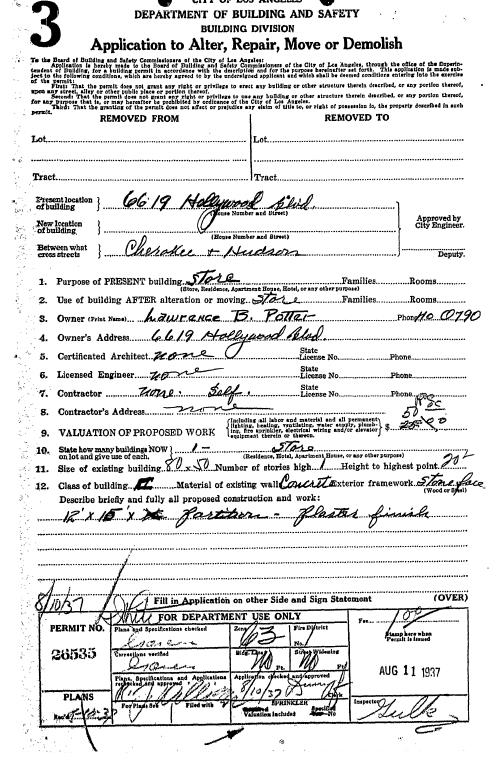 CITY OF LOS ANGELES
3
DEPARTMENT OF BUILDING AND SAFETY
BUILDING DIVISION
Application to Alter, Repair, Move or Demolish
To the Board of Building and Safety Commissioners of the City of Los Angeles:
Application is hereby made to the Board of Building and Safety Commissioners of the City of Los Angeles, through the office of the Superin-
tendent of Building, for a building permit in accordance with the description and for the purpose hereinafter set forth. This application is made sub-
ject to the following conditions, which are hereby agreed to by the undersigned applicant and which shall be deemed conditions entering into the exercise
of the permit:
First: That the permit does not grant any right or privilege to erect any building or other structure therein described, or any portion thereof,
upon any street, alley or other public place or portion thereof.
Second: That the permit does not grant any right or privilege to use any building or other structure therein described, or any portion thereof,
for any purpose that is, or may hereafter be prohibited by ordinance of the City of Los Angeles.
Third: That the granting of the permit does not affect or prejudice any claim of title to, or right of possession in, the property described in such
permit.
REMOVED FROM REMOVED TO
Lot Lot
Tract Tract
Present location of building 6619 Hollywood Blvd.
(House Number and Street)
Approved by City Engineer.
New location of building
(House Number and Street)
Between what cross streets Cherokee + Hudson
Deputy.
1. Purpose of PRESENT building Store Families Rooms
(Store, Residence, Apartment House, Hotel, or any other purpose)
2. Use of building AFTER alteration or moving Store Families Rooms
3. Owner (Print Name) Lawrence B. Potter Phone Ho 0790
4. Owner's Address 6619 Hollywood Blvd.
5. Certificated Architect none State License No. Phone
6. Licensed Engineer none State License No. Phone
7. Contractor none. Self. State License No. Phone
8. Contractor's Address none
9. VALUATION OF PROPOSED WORK {Including all labor and material and all permanent, lighting, heating, ventilating, water supply, plumbing, fire sprinkler, electrical wiring and/or elevator equipment therein or thereon.} $ 50
10. State how many buildings NOW on lot and give use of each. 1 - Store
(Residence, Hotel, Apartment House, or any other purpose)
11. Size of existing building 50 x 50 Number of stories high 1 Height to highest point 20
12. Class of building Material of existing walls Concrete Exterior framework
(Wood or Steel)
Describe briefly and fully all proposed construction and work:
12' x 15' partition - Plaster finish
8/10/37 Fill in Application on other Side and Sign Statement (OVER)
FOR DEPARTMENT USE ONLY
PERMIT NO. Plans and Specifications checked Zone Fire District Fee
26535 No. 1 Stamp here when Permit is issued
Corrections verified Bldg. Line No Ft. Street Widening No Ft.
AUG 11 1937
Plans, Specifications and Applications rechecked and approved Application checked and approved 8/10/37 Clerk
PLANS For Plans See Filed with SPRINKLER Inspector
Valuation Included Specified